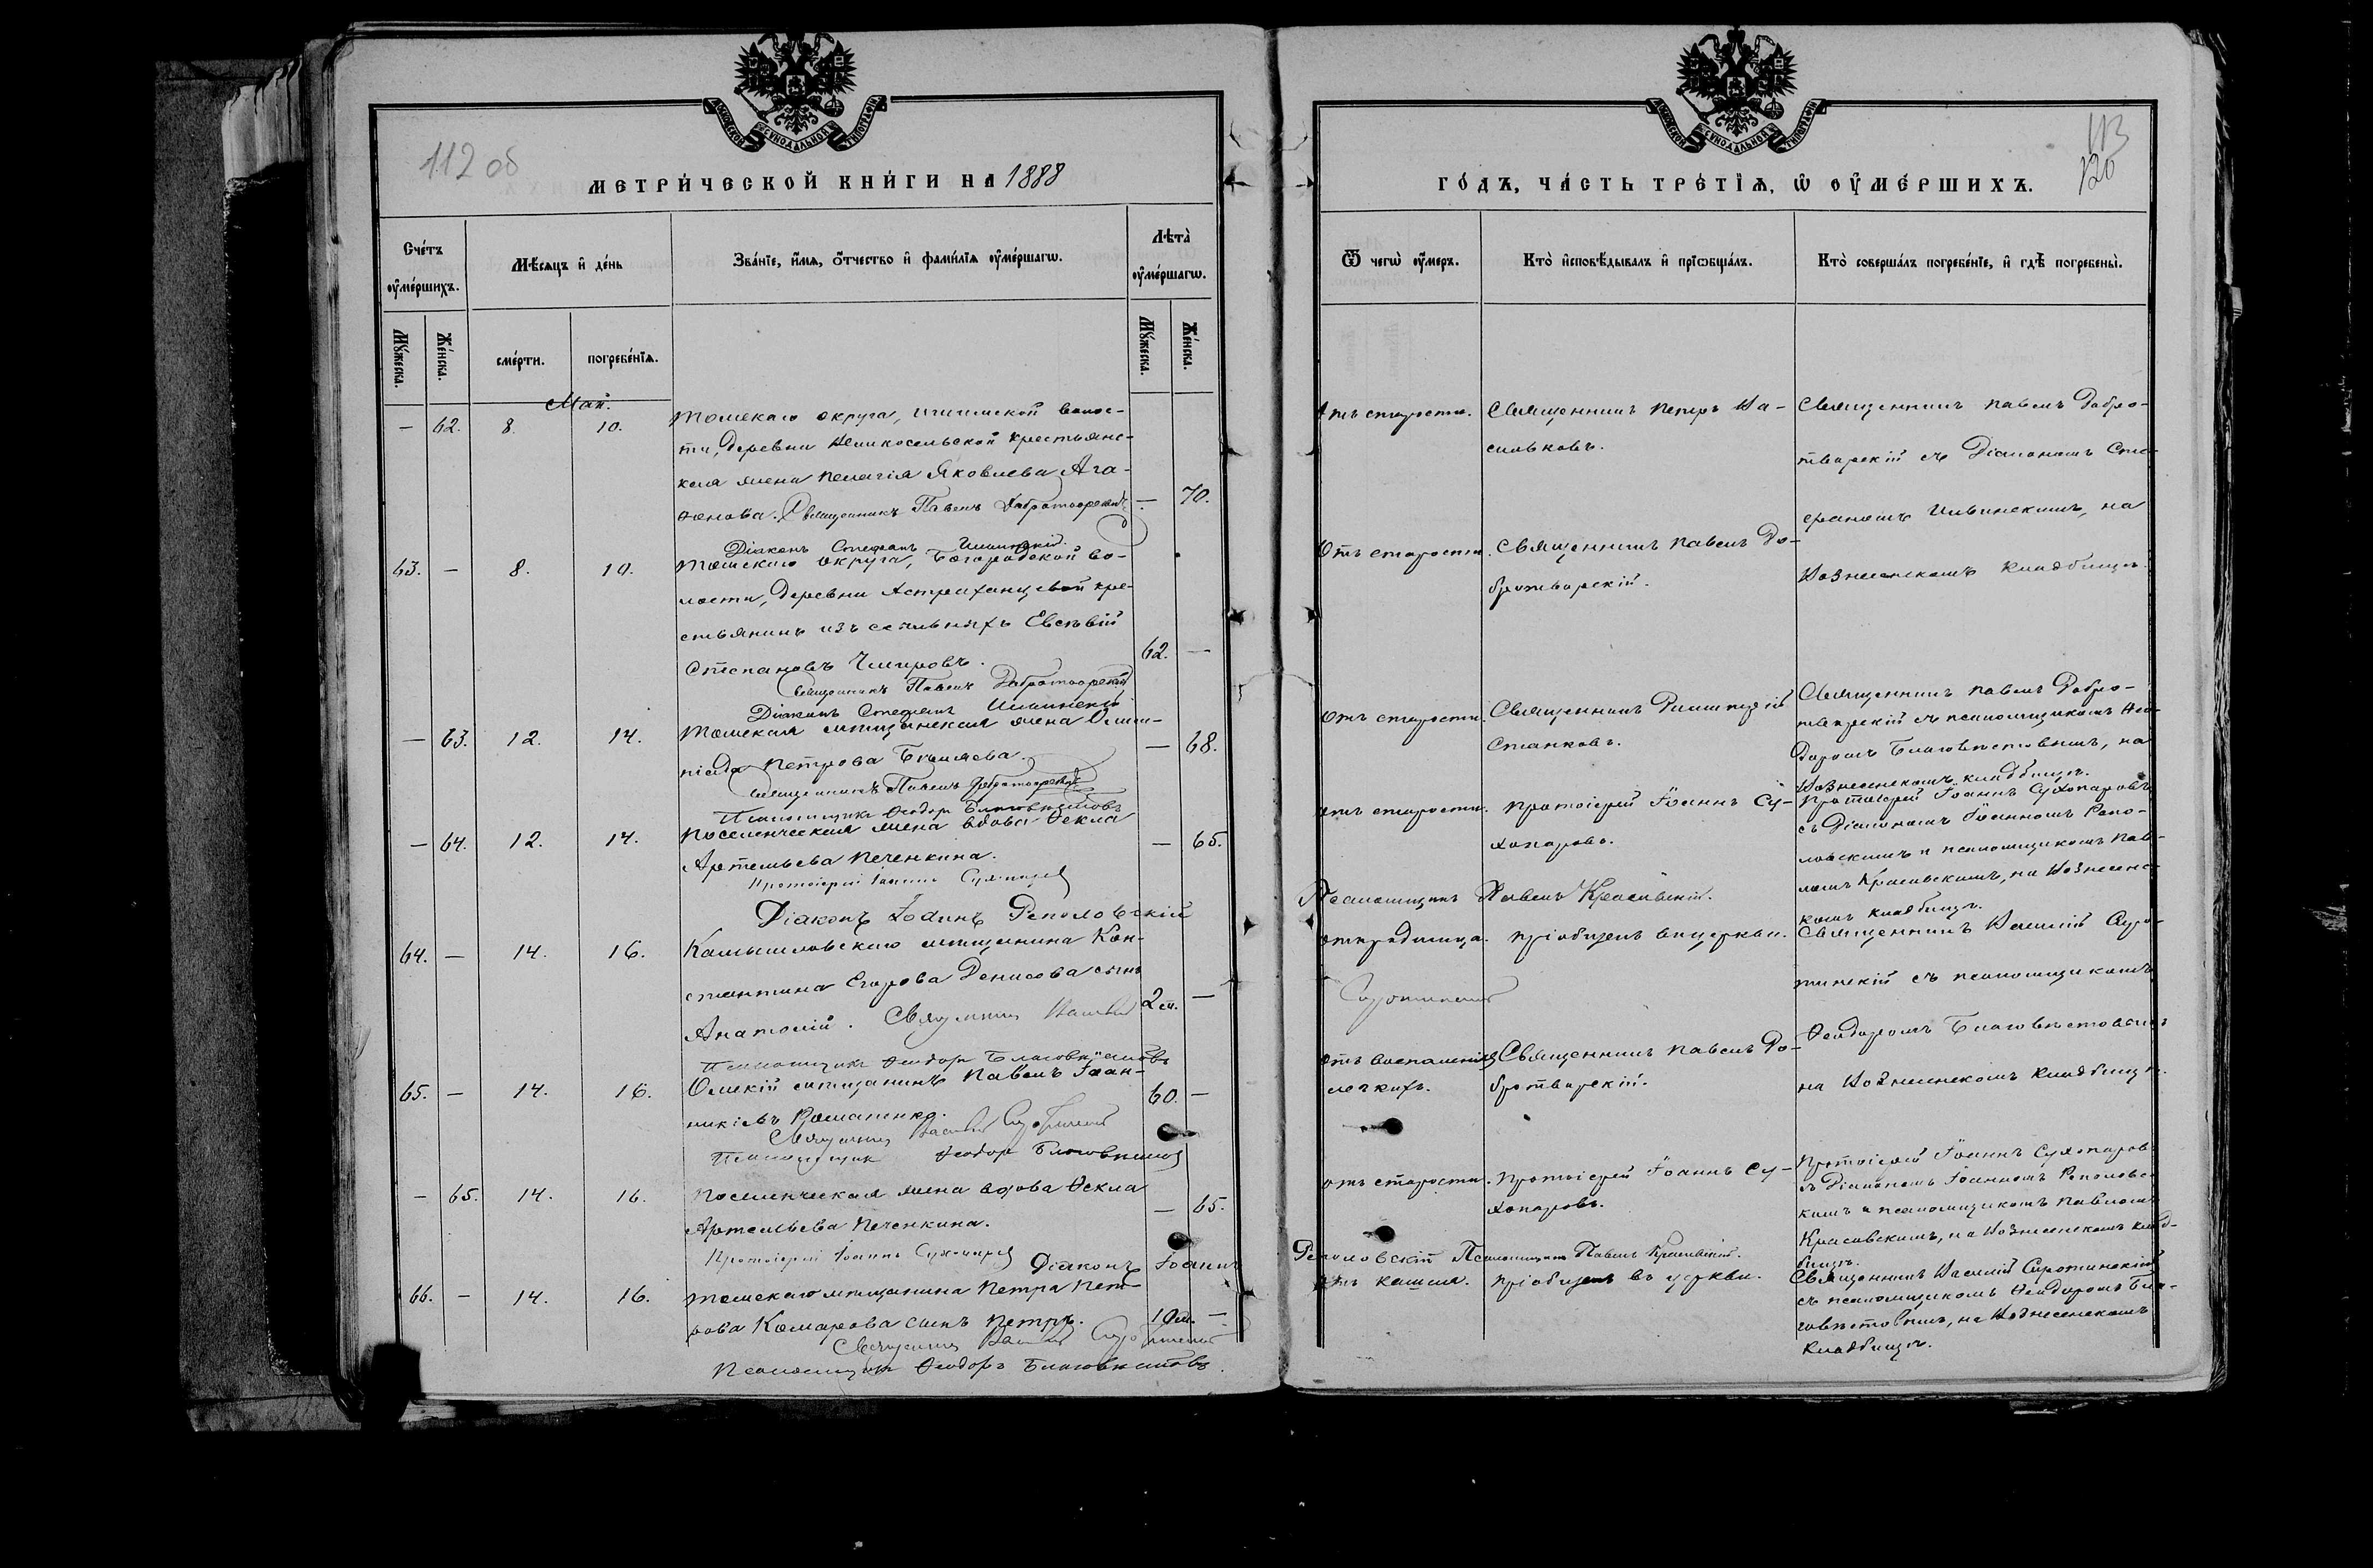 МОСКОВСКОЙ СѴНОДАЛЬНОЙ ТИПОГРАФІИ
112 об
МЕТРИ́ЧЕСКОЙ КНИ́ГИ НА 1888
Сче́тъ ᲂу҆ме́ршихъ.
Мѣ́сяцъ и҆ де́нь
Зва́нїе, и҆́мя, ѻ҆́тчество и҆ фами́лїя ᲂу҆ме́ршагѡ.
Лѣта̀ ᲂу҆ме́ршагѡ.
Мꙋ́жеска.
Же́нска.
сме́рти.
погребе́нїѧ.
Мꙋ́жеска.
Же́нска.
Май.
— 62. 8. 10.
Томскаго округа, Ишимской волос-
ти, деревни крестьянс-
кая жена Пелагія Яковлева Ага-
фонова. Священникъ Павелъ Добротворскій — 70.
Діаконъ Стефанъ Ильинскій.
63. — 8. 10.
Томскаго округа, Богородской во-
лости, деревни Астраханцевой кре-
стьянинъ изъ ссыльныхъ Евсѣвій
Степановъ 62. —
Священникъ Павелъ Добротворскій
Діаконъ Стефанъ Ильинскій
— 63. 12. 14.
Томская мѣщанская жена Олим-
піада Петрова — 68.
Священникъ Павелъ Добротворскій
Псаломщикъ Ѳеодоръ Благовѣстовъ
— 64. 12. 14.
Поселенческая жена вдова Ѳекла
Артемьева Печенкина. — 65.
Протоіерей Іоаннъ Сухопаровъ
Діаконъ Іоаннъ Реполовскій
64. — 14. 16.
Камышловскаго мѣщанина Кон-
стантина Егорова Денисова сынъ
Анатолій. Священникъ Василій 2 —
Псаломщикъ Ѳеодоръ Благовѣстовъ
65. — 14. 16.
Омскій мѣщанинъ Павелъ Іоан-
никіевъ Романенко. 60. —
Священникъ Василій Сиротинскій
Псаломщикъ Ѳеодоръ Благовѣстовъ
— 65. 14. 16.
Поселенческая жена вдова Ѳекла
Артемьева Печенкина. — 65.
Протоіерей Іоаннъ Сухопаровъ Діаконъ Іоаннъ
66. — 14. 16.
Томскаго мѣщанина Петра Пет-
рова Комарова сынъ Петръ. 10 м. —
Священникъ Василій Сиротинскій
Псаломщикъ Ѳеодоръ Благовѣстовъ.
МОСКОВСКОЙ СѴНОДАЛЬНОЙ ТИПОГРАФІИ
113
120
ГО́ДЪ, ЧА́СТЬ ТРЕ́ТЇѦ, Ѡ҆ ОУ҆МЕ́РШИХЪ.
Ѿ чегѡ̀ ᲂу҆́меръ.
Кто̀ и҆сповѣ́дывалъ и҆ прїѡбща́лъ.
Кто̀ соверша́лъ погребе́нїе, и҆ гдѣ̀ погребены̀.
Отъ старости.
Священникъ Петръ Ва-
сильковъ.
Священникъ Павелъ Добро-
творскій съ Діакономъ Сте-
фаномъ Ильинскимъ, на
Вознесенскомъ кладбищѣ.
Отъ старости.
Священникъ Павелъ До-
бротворскій.
Отъ старости.
Священникъ
Станковъ.
Священникъ Павелъ Добро-
творскій съ псаломщикомъ Ѳео-
доромъ Благовѣстовымъ, на
Вознесенскомъ кладбищѣ.
отъ старости.
Протоіерей Іоаннъ Су-
хопаровъ.
Протоіерей Іоаннъ Сухопаровъ
съ Діакономъ Іоанномъ Репо-
ловскимъ и псаломщикомъ Пав-
ломъ Красивскимъ, на Вознесенс-
комъ кладбищѣ.
Псаломщикъ Павелъ Красивскій.
отъ родимца.
пріобщенъ въ церкви.
Священникъ Василій Сиро-
тинскій съ псаломщикомъ
Ѳеодоромъ Благовѣстовымъ
на Вознесенскомъ кладбищѣ.
Сиротинскій
Отъ воспаленія
легкихъ.
Священникъ Павелъ До-
бротворскій.
отъ старости.
Протоіерей Іоаннъ Су-
хопаровъ.
Протоіерей Іоаннъ Сухопаровъ
съ Діакономъ Іоанномъ Реполовс-
кимъ и псаломщикомъ Павломъ
Красовскимъ, на Вознесенскомъ клад-
бищѣ.
Реполовскій Псаломщикъ Павелъ Красивскій.
отъ кашля.
пріобщенъ въ церкви.
Священникъ Василій Сиротинскій
съ псаломщикомъ Ѳеодоромъ Бла-
говѣстовымъ, на Вознесенскомъ
кладбищѣ.